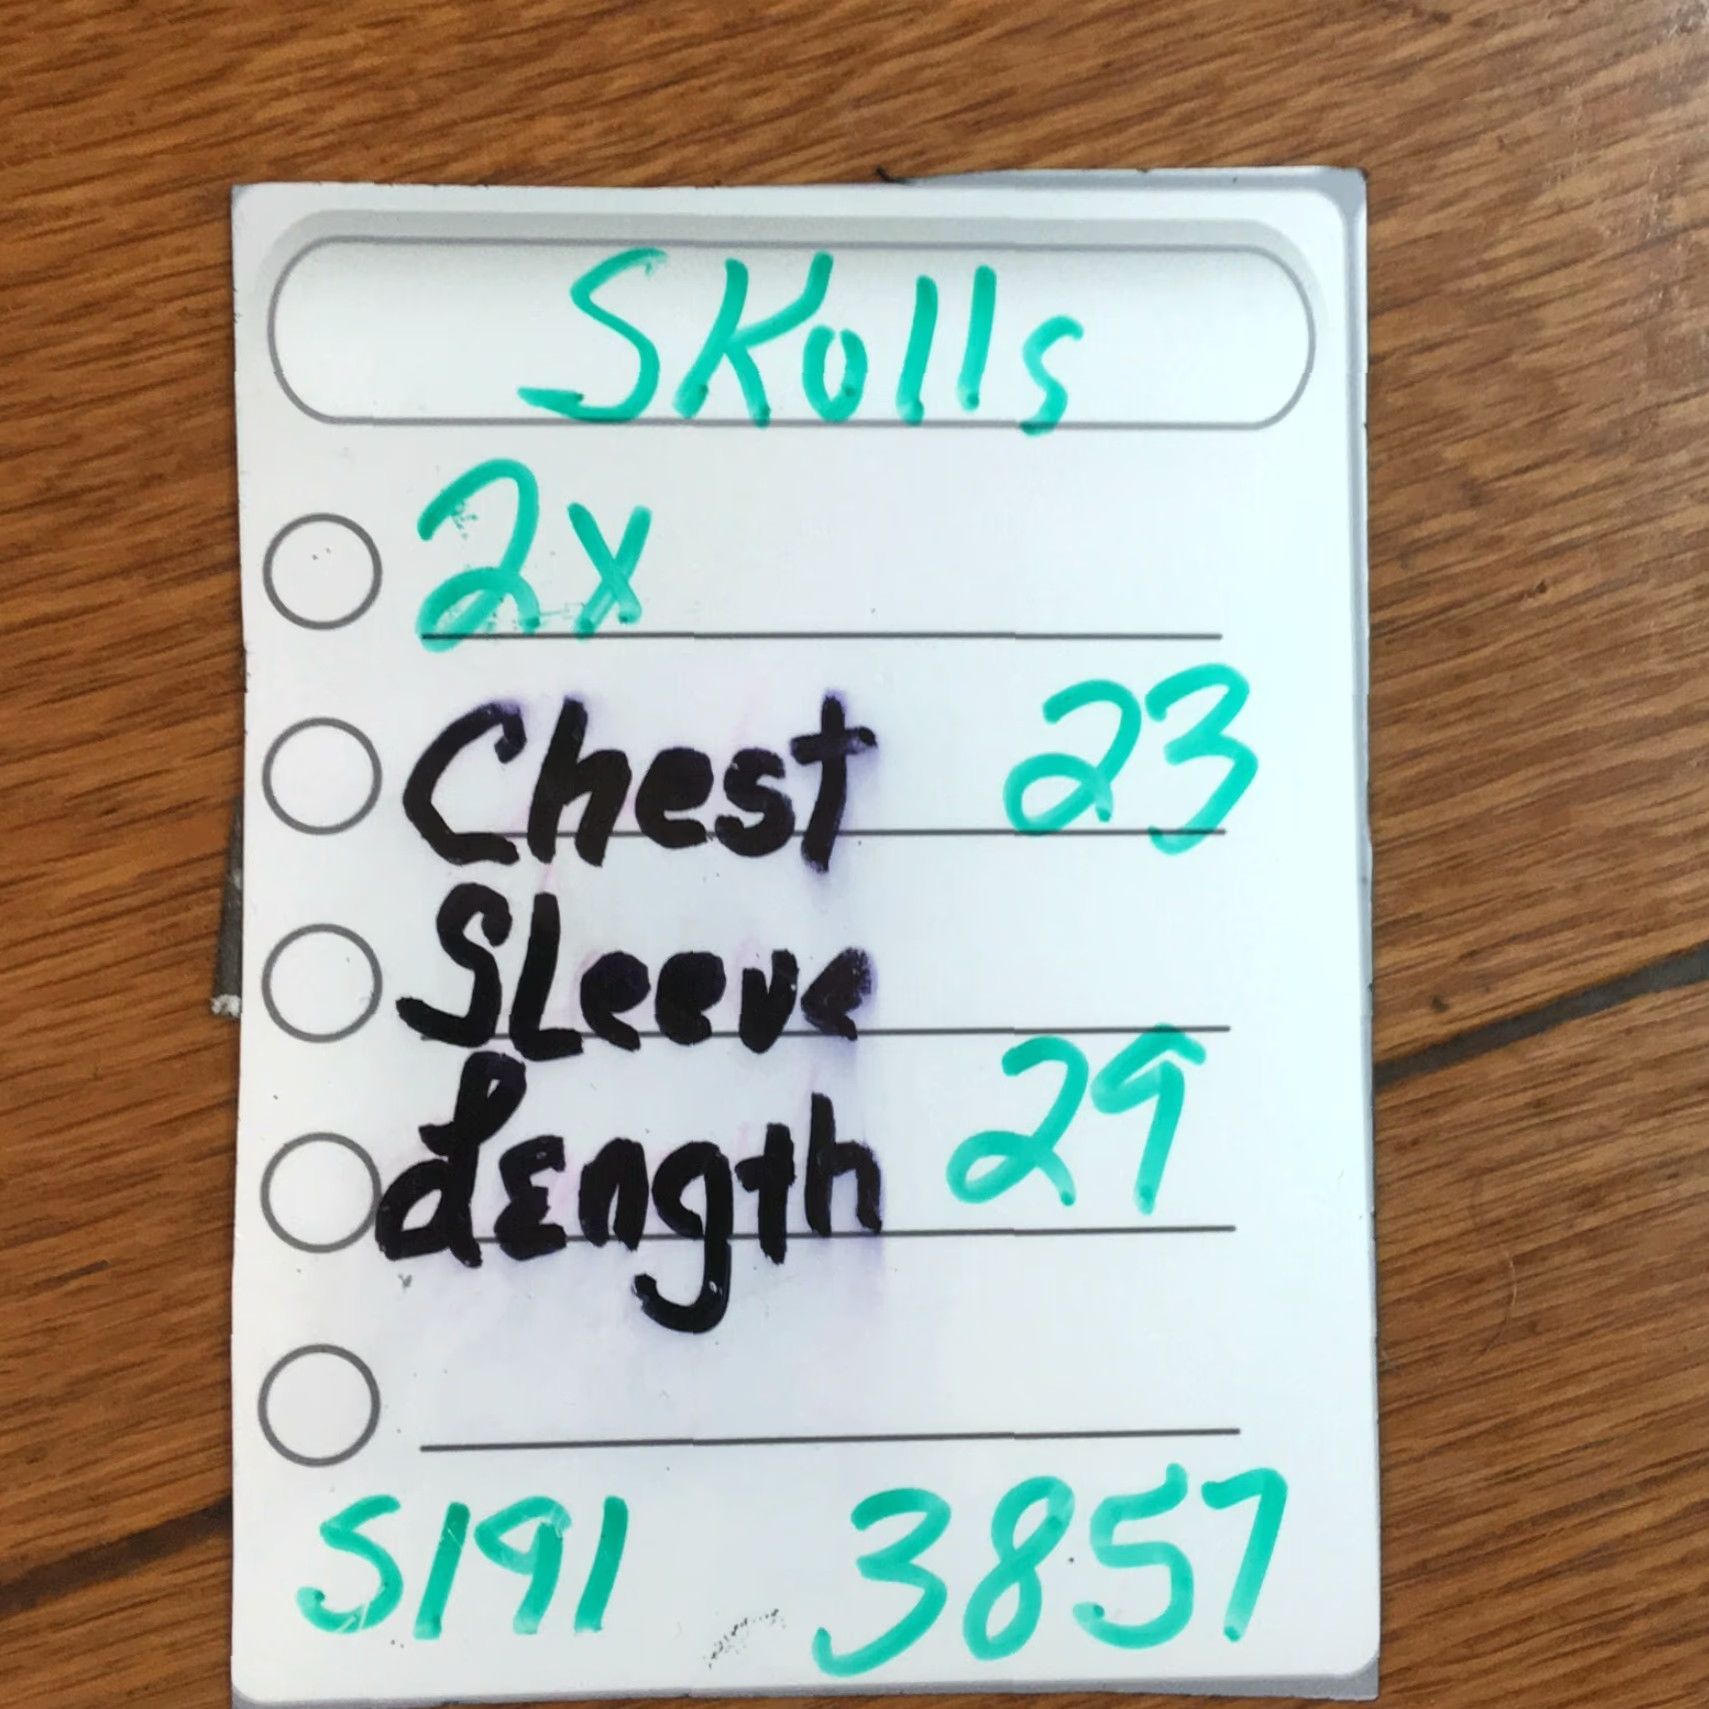 SKulls
2x
Chest 23
SLeeve
LEngth 29
S191 3857